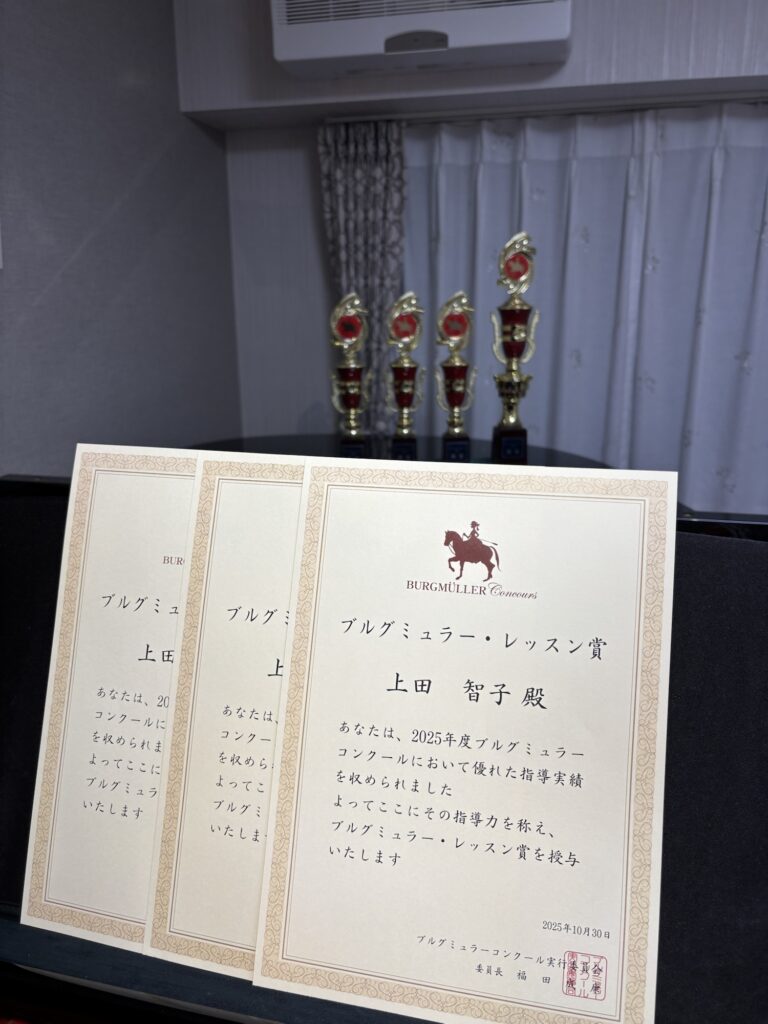 BUR
ブルグミュ
上田
あなたは、20
コンクールに
を収められま
よってここに
ブルグミュラ
いたします
ブルグミ
上
あなたは、
コンクー
を収めら
よってこ
ブルグミ
いたしま
BURGMÜLLER Concours
ブルグミュラー・レッスン賞
上田 智子 殿
あなたは、2025年度ブルグミュラー
コンクールにおいて優れた指導実績
を収められました
よってここにその指導力を称え、
ブルグミュラー・レッスン賞を授与
いたします
2025年10月30日
ブルグミュラーコンクール実行委員会
委員長 福田